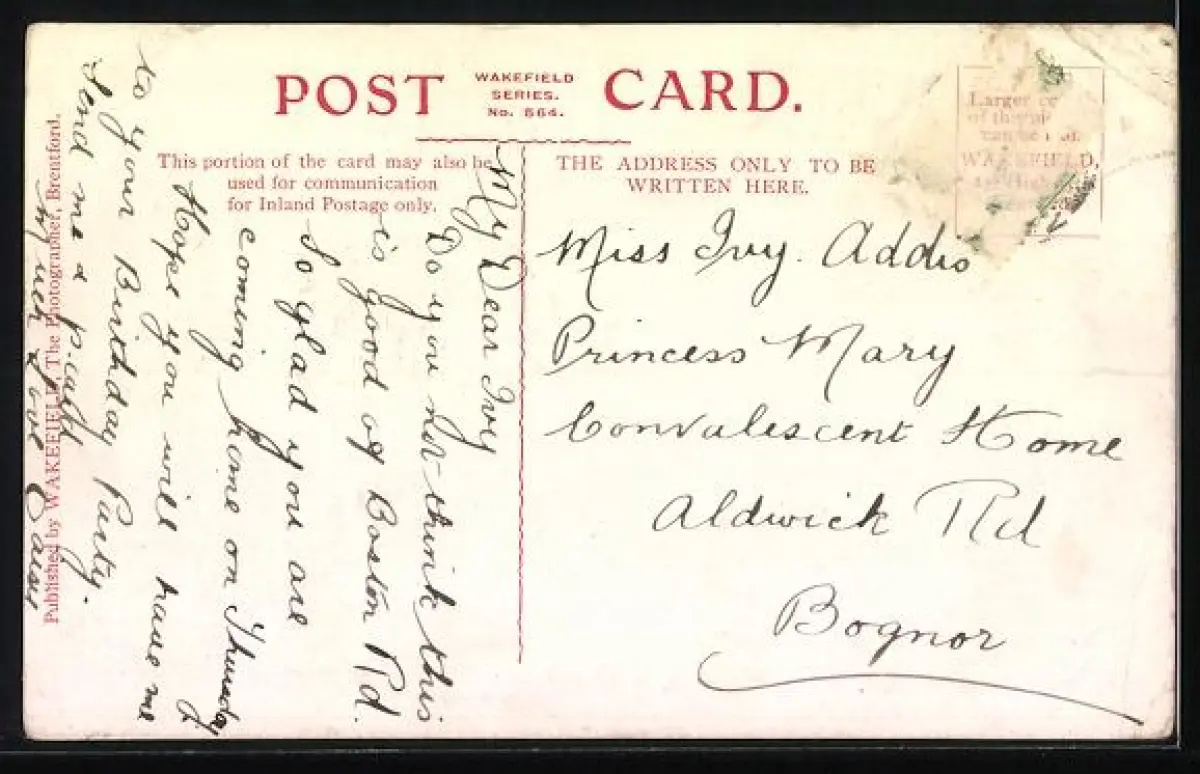 POST CARD.
WAKEFIELD
SERIES.
No. 564.
This portion of the card may also be
used for communication
for Inland Postage only.
THE ADDRESS ONLY TO BE
WRITTEN HERE.
Larger
of
can be
WAKEFIELD,
High
My Dear Ivy
Do you not think this
is good of Boston Rd.
So glad you are
coming home on Thursday
Hope you will have me
to your Birthday Party.
Send me a p.card
Much Love Daisy
Miss Ivy. Addis
Princess Mary
Convalescent Home
Aldwick Rd
Bognor
Published by WAKEFIELD, The Photographer, Brentford.